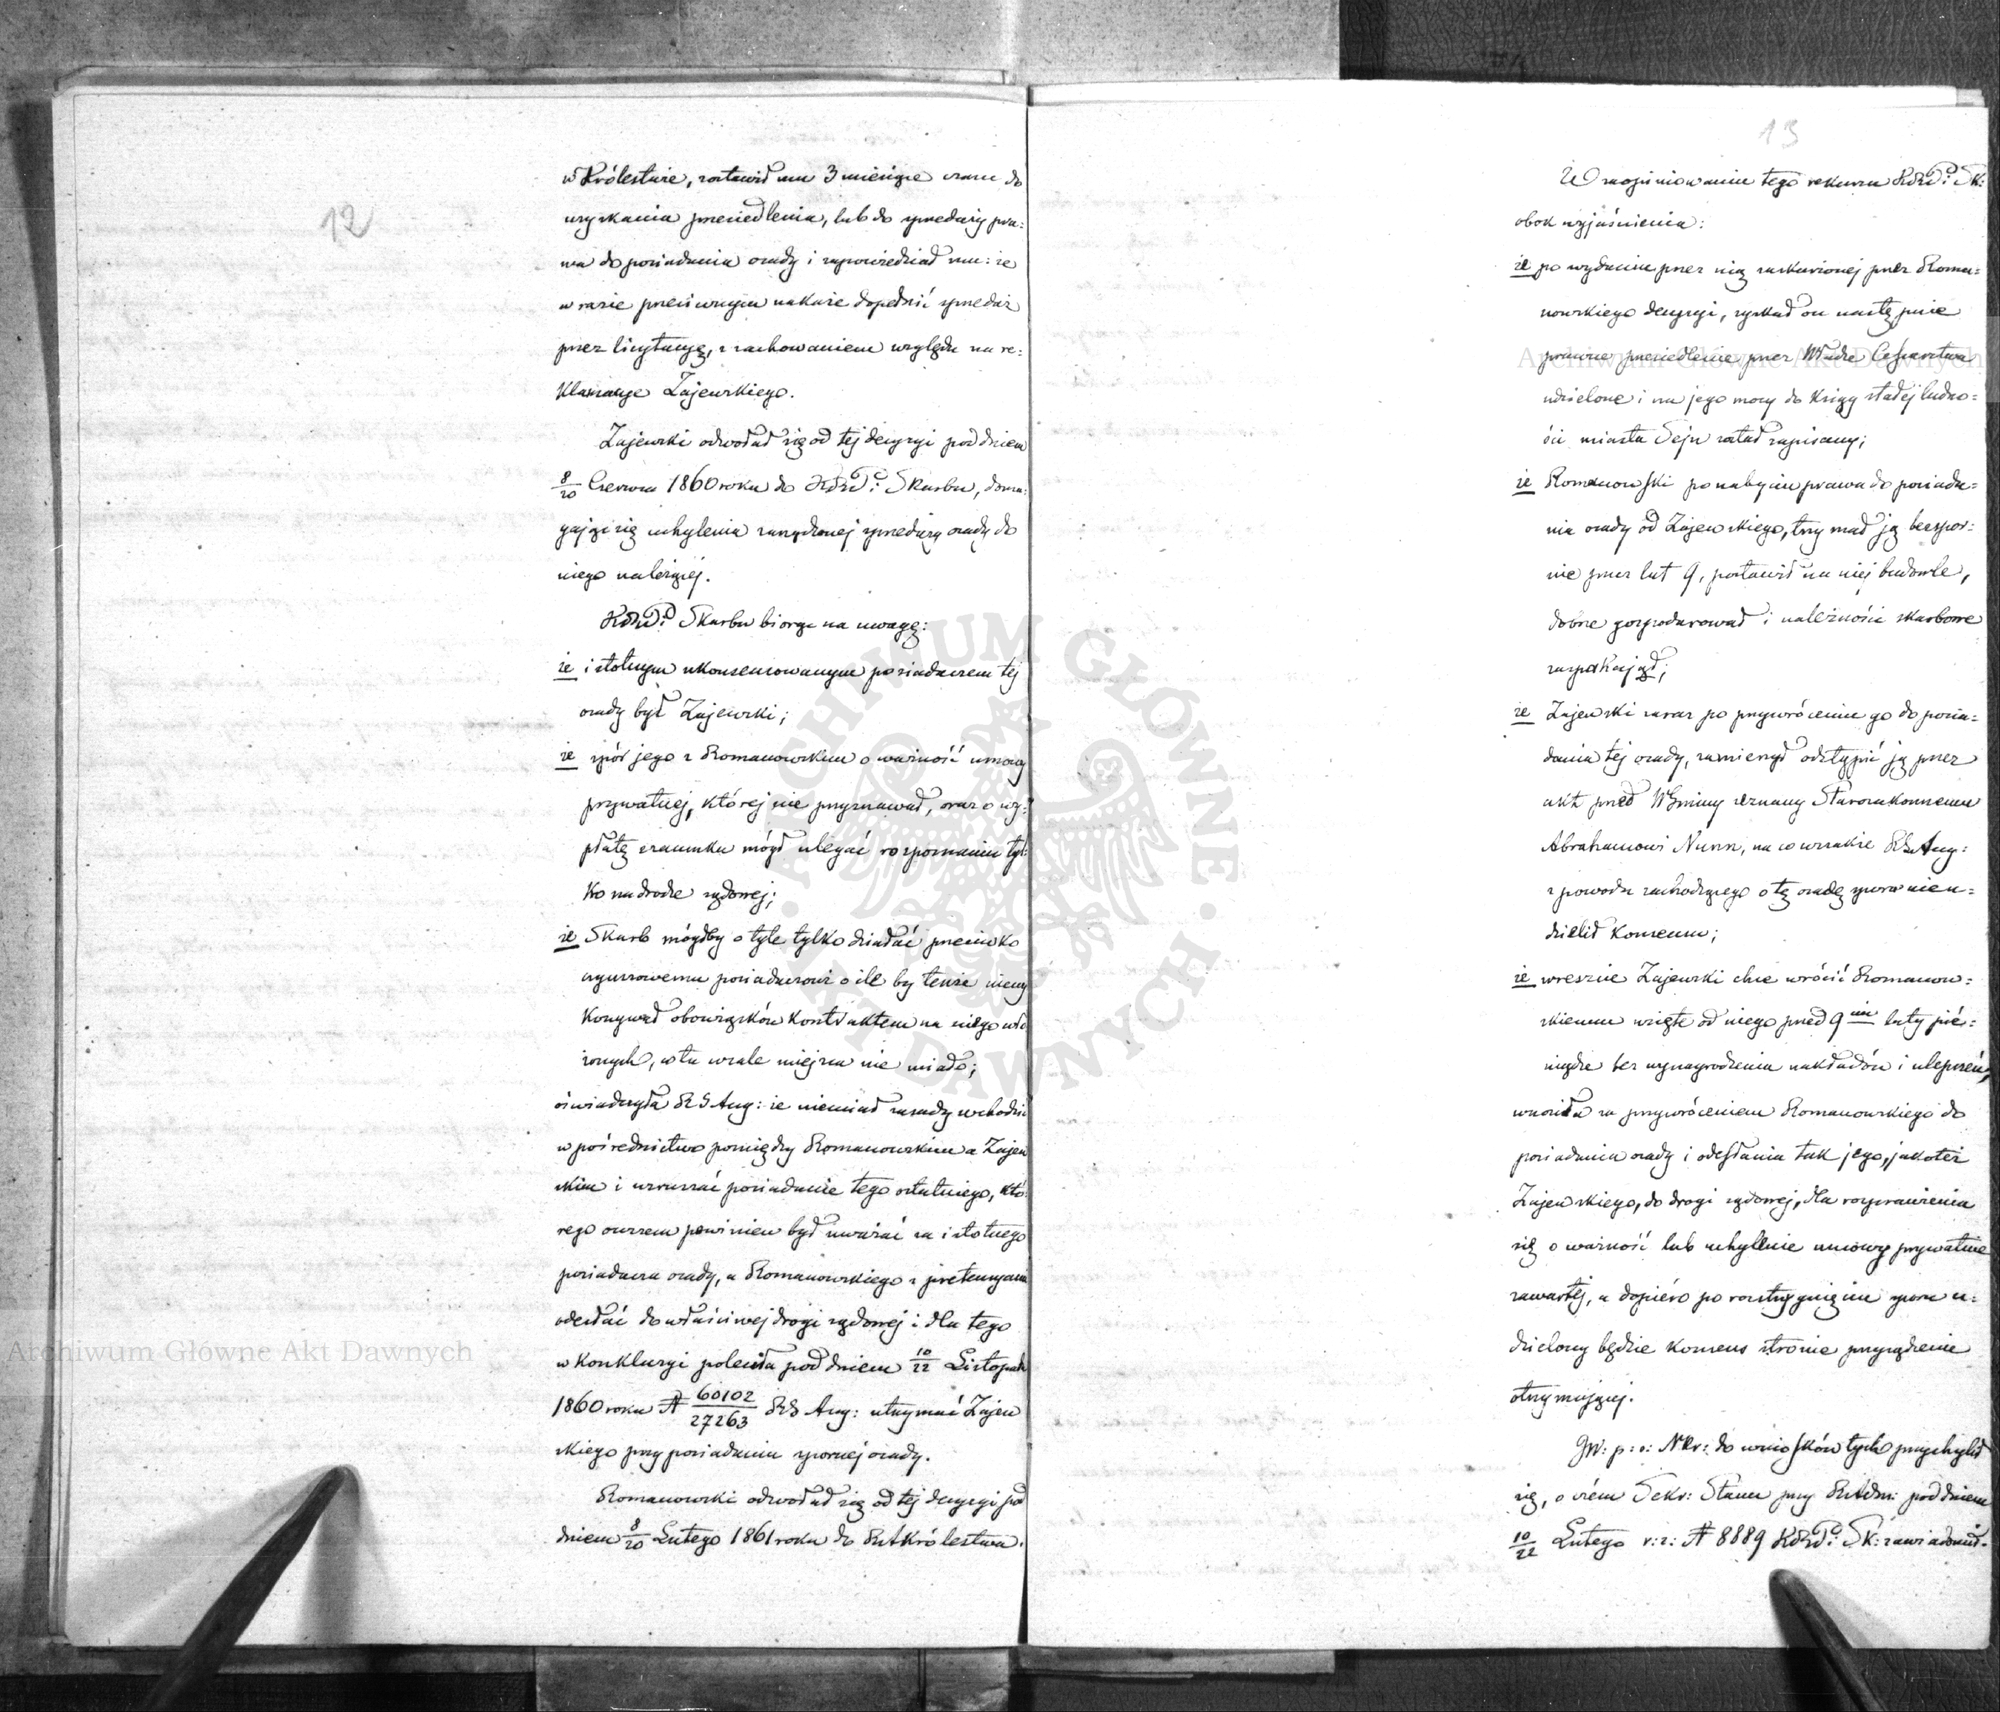 12
w Królestwie, zostawił mu 3 miesiące czasu do
uzyskania przesiedlenia, lub do sprzedaży pra:
wa do posiadania osady i zapowiedział mu: że
w razie przeciwnym nakaże dopełnić sprzedaż
przez licytacyę, z zachowaniem względu na re:
klamacye Zajewskiego.
Zajewski odwołał się od tej decyzyi pod dniem
8/20 Czerwca 1860 roku do KRzP: i Skarbu, doma:
gając się uchylenia zarządzonej sprzedaży osady do
niego należącej.
KRzP: i Skarbu biorąc na uwagę:
że istotnym ukonsensowanym posiadaczem tej
osady był Zajewski;
że spór jego z Romanowskim o ważność umowy
prywatnej, której nie przyznawał, oraz o wy:
płatę szacunku mógł ulegać rozpoznaniu tyl:
ko na drodze sądowej;
że Skarb mógłby o tyle tylko działać przeciwko
czynszowemu posiadaczowi o ile by tenże niewy
konywał obowiązków kontraktem na niego wło
żonych, co tu wcale miejsca nie miało;
oświadczyła RG Aug: że niemiał zasady wchodzić
w pośrednictwo pomiędzy Romanowskim a Zajew
skim i wzruszać posiadanie tego ostatniego, któ:
rego owszem powinien był uważać za istotnego
posiadacza osady, a Romanowskiego z pretensyami
odesłać do właściwej drogi sądowej i dla tego
w konkluzyi poleciła pod dniem 10/22 Listopada
1860 roku N 60102/27263 RG Aug: utrzymać Zajew
skiego przy posiadaniu spornej osady.
Romanowski odwołał się od tej decyzyi pod
dniem 8/20 Lutego 1861 roku do RAKrólestwa.
13
W zaopiniowaniu tego rekursu KRzP: i Sk:
obok wyjaśnienia:
że po wydaniu przez nią zaskarżonej przez Roma:
nowskiego decyzyi, zyskał on następnie
prawne przesiedlenie przez Władze Cesarstwa
udzielone i na jego mocy do księgi stałej ludno:
ści miasta Sejn został zapisany;
że Romanowski po nabyciu prawa do posiada:
nia osady od Zajewskiego, trzymał ją bezspor:
nie przez lat 9, postawił na niej budowle,
dobrze gospodarował i należności skarbowe
zaspakajał;
że Zajewski zaraz po przywróceniu go do posia:
dania tej osady, zamierzył odstąpić ją przez
akt przed WGminy zeznany Starozakonnemu
Abrahamowi Nunn, na co wszakże RG Aug:
z powodu zachodzącego o tę osadę sporu nieu:
dzielił konsensu;
że wreszcie Zajewski chce wrócić Romanow:
skiemu wzięte od niego przed 9ciu laty pie:
niądze bez wynagrodzenia nakładów i ulepszeń;
wnosiła za przywróceniem Romanowskiego do
posiadania osady i odesłania tak jego, jakoteż
Zajewskiego, do drogi sądowej, dla rozprawienia
się o ważność lub uchylenie umowy prywatnie
zawartej, a dopiero po rozstrzygnięciu sporu u:
dzielony będzie konsens stronie przysądzenie
otrzymującej.
JW: p: o: Nkr: do wniosków tych przychylił
się, o czem Sekr: Stanu przy RAdm: pod dniem
10/22 Lutego r: z: N 8889 KRzP: i Sk: zawiadomił.
Archiwum Główne Akt Dawnych
Archiwum Główne Akt Dawnych
ARCHIWUM GŁÓWNE · AKT DAWNYCH ·